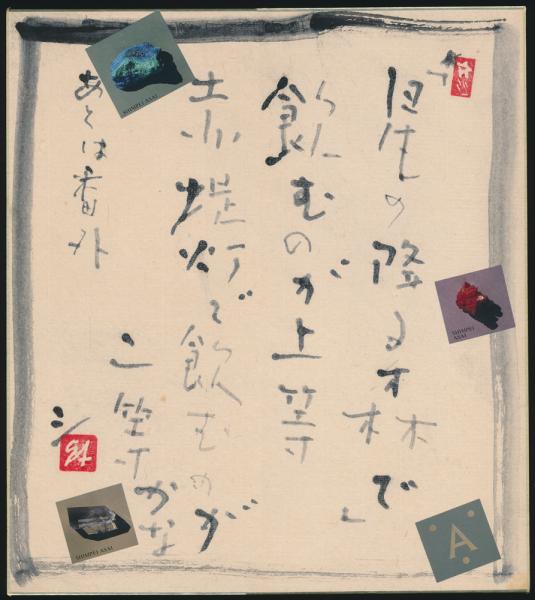 「星の降る森で」
飲むのが上等
赤提灯で飲むのが
二等かな
あとは番外
シ
SHIMPEI ASAI
SHIMPEI
ASAI
SHIMPEI ASAI
A